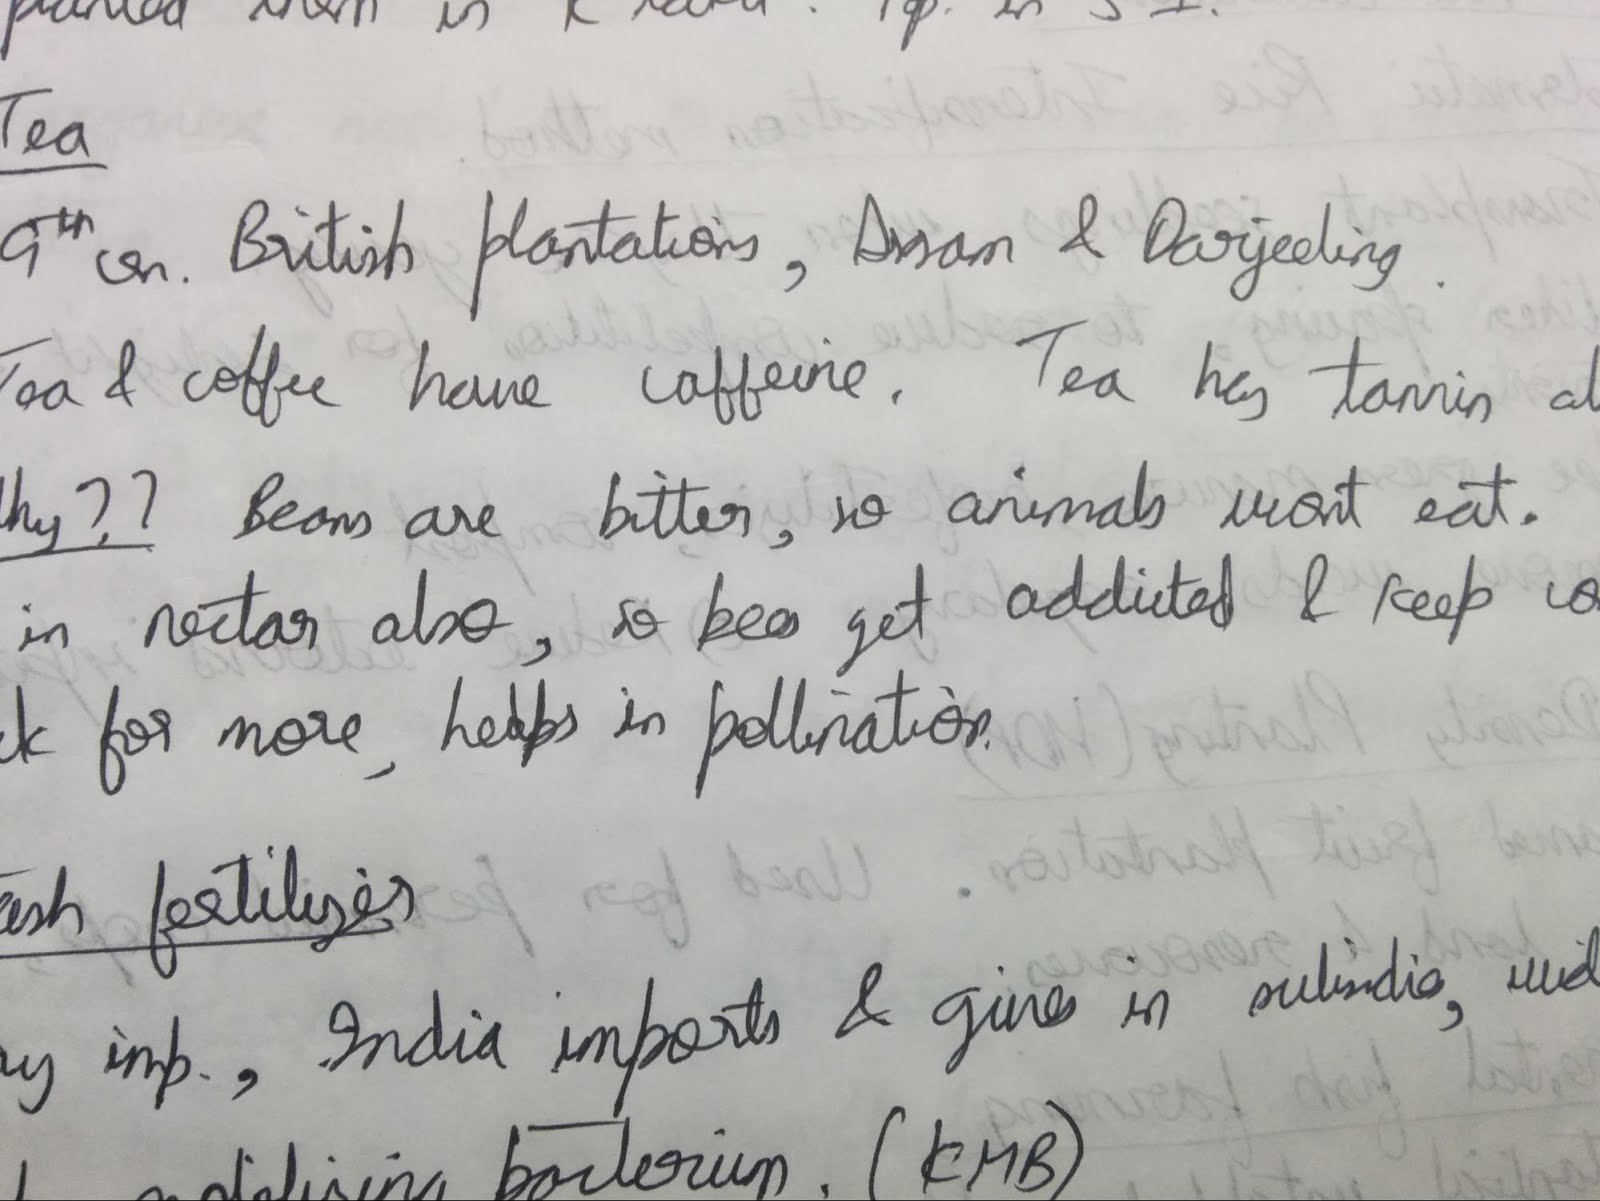 planted them in K
Tea
9th cen. British plantations, Assam & Darjeeling.
Tea & coffee have caffeine. Tea has tannin al
hy?? Beans are bitter, so animals wont eat.
in nectar also, so bees get addicted & keep co
ck for more, helps in pollination.
ash fertilizer
ry imp., India imports & gives in subsidie, wid
bacterium. (KMB)